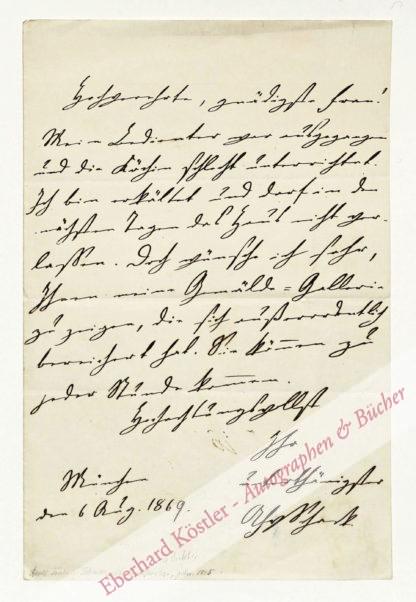 Hochverehrte, gnädigste Frau!
Mein Bedienter war ausgegangen
und die Köchin schlecht unterrichtet.
Ich bin erkältet und darf in den
nächsten Tagen das Haus nicht ver-
lassen. Doch wünsche ich sehr,
Ihnen meine Gemälde=Gallerie
zu zeigen, die sich außerordentlich
bereichert hat. Sie können zu
jeder Stunde kommen.
Hochachtungsvollst
Ihr
unterthänigster
AFvSchack.
München
den 6 Aug. 1869.
Eberhard Köstler - Autographen & Bücher